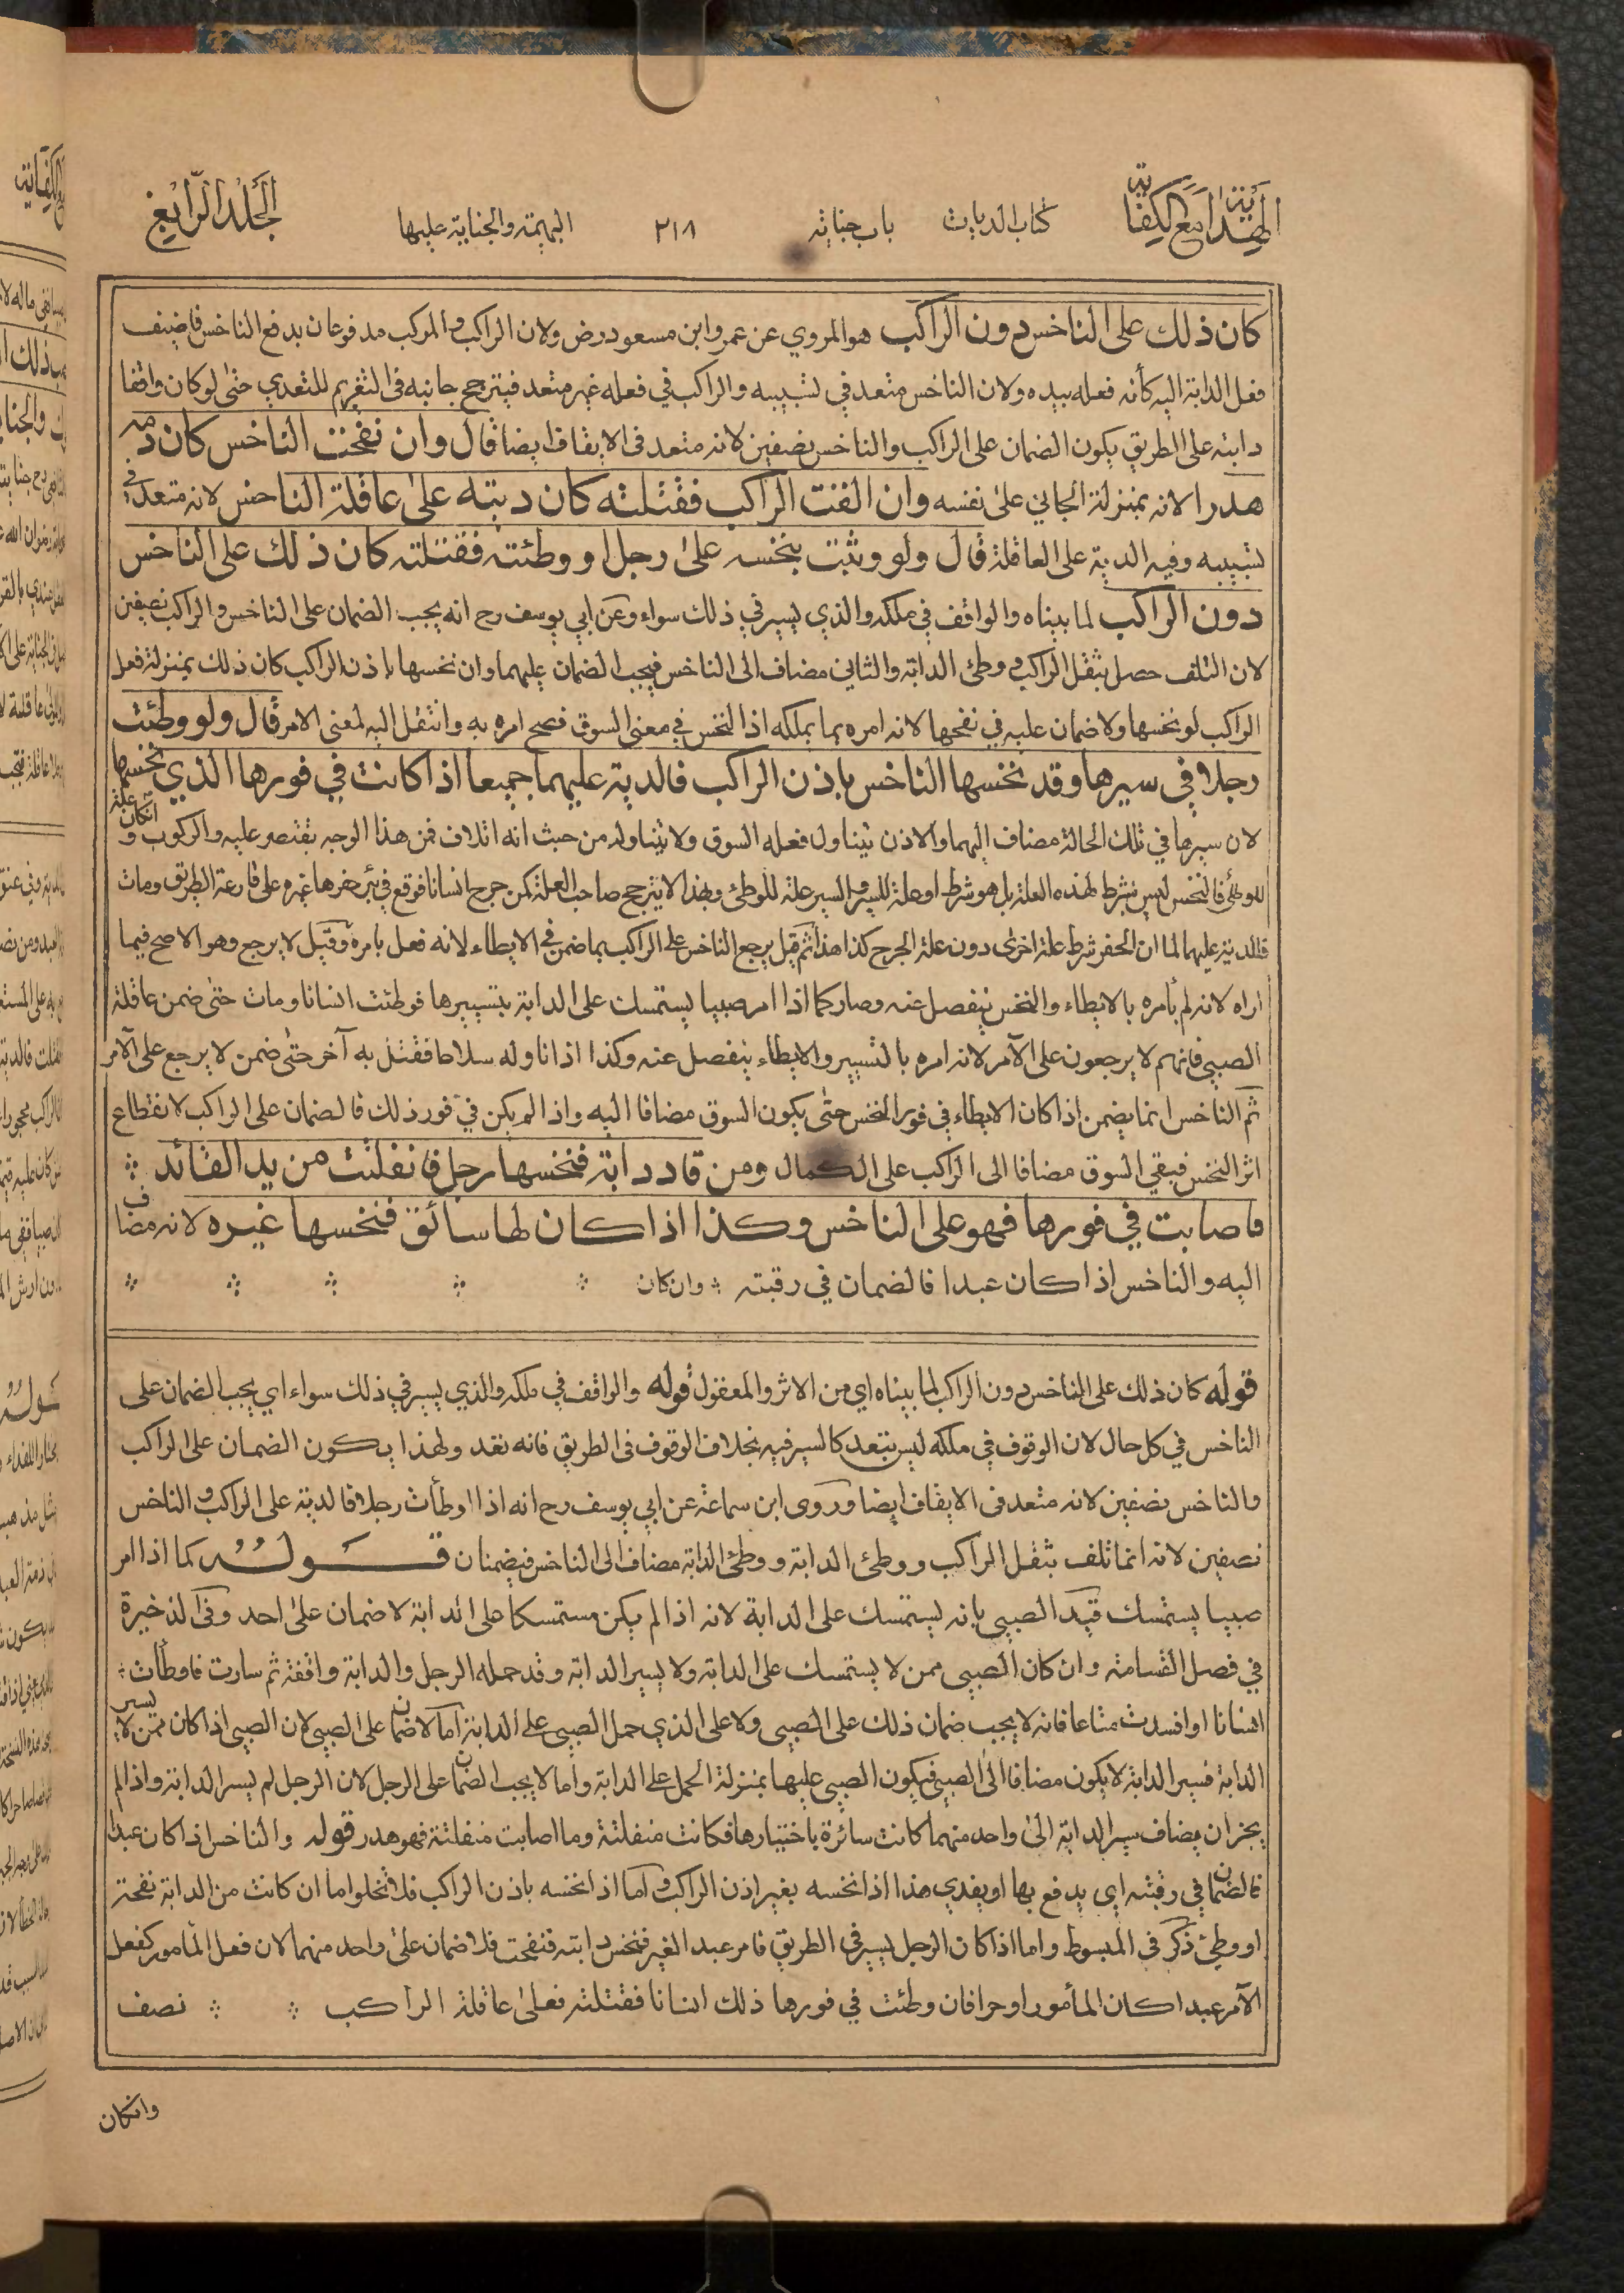 الهداية مع الكفاية
كتاب الديات
باب جناية
٢١٨
البهيمة والجناية عليها
الجلد الرابع
كان ذلك على الناخس دون الراكب هو المروي عن عمر وابن مسعود رض ولان الراكب والمركب مدفوعان بدفع الناخس فاضيف
فعل الدابة اليه كأنه فعله بيده ولان الناخس متعد في تسبيبه والراكب في فعله غير متعد فيترجح جانبه في التغريم للتعدي حتى لو كان واقفا
دابته على الطريق يكون الضمان على الراكب والناخس نصفين لانه متعد في الايقاف ايضا قال وان نفحت الناخس كان دمه
هدرا لانه بمنزلة الجاني على نفسه وان القت الراكب فقتلته كان ديته على عاقلة الناخس لانه متعد في
تسبيبه وفيه الدية على العاقلة قال ولو وثبت بنخسه على رجل او وطئته فقتلته كان ذلك على الناخس
دون الراكب لما بيناه والواقف في ملكه والذي يسير في ذلك سواء وعن ابي يوسف رح انه يجب الضمان على الناخس والراكب نصفين
لان التلف حصل بثقل الراكب ووطئ الدابة والثاني مضاف الى الناخس فيجب الضمان عليهما وان نخسها باذن الراكب كان ذلك بمنزلة فعل
الراكب لو نخسها ولا ضمان عليه في نفحها لانه امره بما يملكه اذ النخس في معنى السوق فصح امره به وانتقل اليه لمعنى الامر قال ولو وطئت
رجلا في سيرها وقد نخسها الناخس باذن الراكب فالدية عليهما جميعا اذا كانت في فورها الذي نخسها
لان سيرها في تلك الحالة مضاف اليهما والاذن يتناول فعله السوق ولا يتناوله من حيث انه اتلاف فمن هذا الوجه يقتصر عليه والركوب وانكان علة
للوطئ فالنخس ليس بشرط لهذه العلة بل هو شرط او علة للسير والسير علة للوطئ وبهذا لا يترجح صاحب العلة كمن جرح انسانا فوقع في بئر حفرها غيره على قارعة الطريق ومات
فالدية عليهما لما ان الحفر شرط علة اخرى دون علة الجرح كذا هذا ثم قيل يرجع الناخس على الراكب بما ضمن في الايطاء لانه فعل بامره وقيل لا يرجع وهو الاصح فيما
اراه لانه لم يأمره بالايطاء والنخس ينفصل عنه وصار كما اذا امر صبيا يستمسك على الدابة بتسييرها فوطئت انسانا ومات حتى ضمن عاقلة
الصبي فانهم لا يرجعون على الآمر لانه امره بالتسيير والايطاء ينفصل عنه وكذا اذا ناوله سلاحا فقتل به آخر حتى ضمن لا يرجع على الآمر
ثم الناخس انما يضمن اذا كان الايطاء في فور النخس حتى يكون السوق مضافا اليه واذا لم يكن في فور ذلك فالضمان على الراكب لانقطاع
اثر النخس فبقي السوق مضافا الى الراكب على الكمال ومن قاد دابة فنخسها رجل فانفلتت من يد القائد
فاصابت في فورها فهو على الناخس وكذا اذا كان لها سائق فنخسها غيره لانه مضاف
اليه والناخس اذا كان عبدا فالضمان في رقبته وان كان
قوله كان ذلك على الناخس دون الراكب لما بيناه اي من الاثر والمعقول قوله والواقف في ملكه والذي يسير في ذلك سواء اي يجب الضمان على
الناخس في كل حال لان الوقوف في ملكه ليس بتعد كالسير فيه بخلاف الوقوف في الطريق فانه تعد ولهذا يكون الضمان على الراكب
والناخس نصفين لانه متعد في الايقاف ايضا وروى ابن سماعة عن ابي يوسف رح انه اذا اوطأت رجلا فالدية على الراكب والناخس
نصفين لانه انما تلف بثقل الراكب ووطئ الدابة ووطئ الدابة مضاف الى الناخس فيضمنان قوله كما اذا امر
صبيا يستمسك قيد الصبي بانه يستمسك على الدابة لانه اذا لم يكن مستمسكا على الدابة لا ضمان على احد وفي الذخيرة
في فصل القسامة وان كان الصبي ممن لا يستمسك على الدابة ولا يسير الدابة وقد حمله الرجل والدابة واقفة ثم سارت فاوطأت
انسانا او افسدت متاعا فانه لا يجب ضمان ذلك على الصبي ولا على الذي حمل الصبي على الدابة اما لا ضمان على الصبي لان الصبي اذا كان ممن لا يسير
الدابة فسير الدابة لا يكون مضافا الى الصبي فيكون الصبي عليها بمنزلة الحمل على الدابة واما لا يجب الضمان على الرجل لان الرجل لم يسر الدابة واذا لم
يجز ان يضاف سير الدابة الى واحد منهما كانت سائرة باختيارها فكانت منفلتة وما اصابت منفلتة فهو هدر قوله والناخس اذا كان عبدا
فالضمان في رقبته اي يدفع بها او يفدي هذا اذا نخسه بغير اذن الراكب واما اذا نخسه باذن الراكب فلا تخلوا ما ان كانت من الدابة نفحة
او وطئ ذكر في المبسوط واما اذا كان الرجل يسير في الطريق فامر عبد الغير فنخس دابته فنفحت فلا ضمان على واحد منهما لان فعل المأمور كفعل
الآمر عبدا كان المأمور او حرا فان وطئت في فورها ذلك انسانا فقتلته فعلى عاقلة الراكب نصف
وانكان